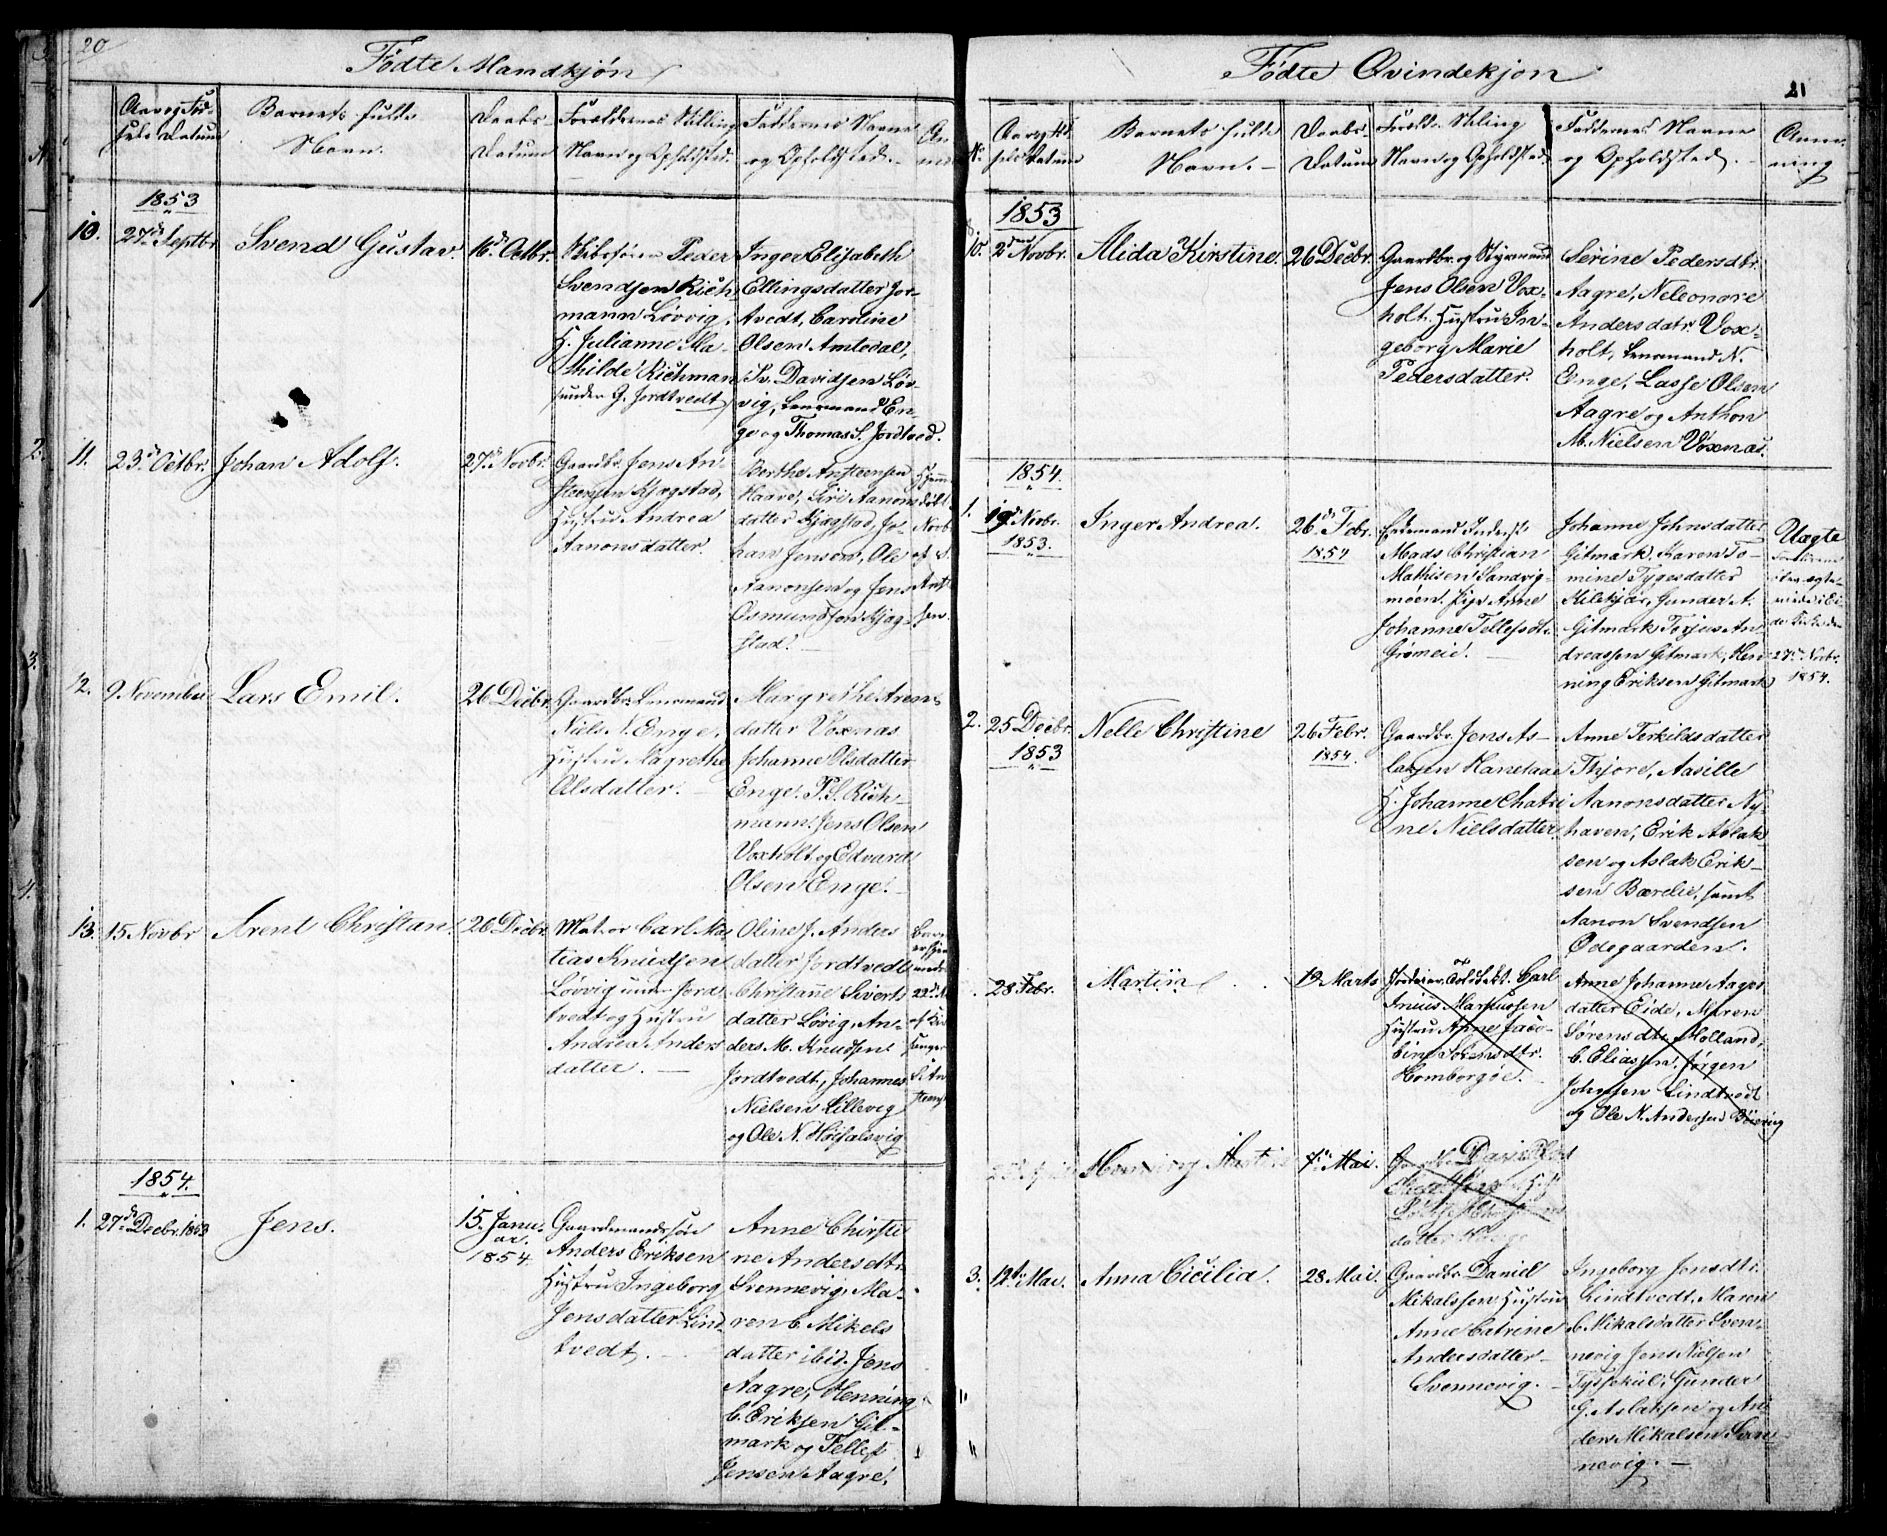 20
Fødte Mandkjøn
Aar og Fød-
sels Datum
Barnets fulde
Navn.
Daabs-
Datum
Forældrenes Stilling
Navn og Opholdsted.
Faddernes Navne
og Opholdsted.
1853
10.
27de Septbr.
Svend Gustav.
16de Octbr.
Peder
Svendsen Rich
mann Løvvig,
H. Julianne Ma-
thilde Richman
under G. Jordtvedt
Inger Elisabeth
Ellingsdatter Jor-
tvedt, Caroline
Olsen Amtedal,
Sv. Davidsen Løv-
vig, Lensmand En-
ge og Thomas S. Jordtved.
11.
23de Octbr.
Johan Adolf.
27de Novbr.
Gaardbr. Jens An-
steensen Kjøgstad,
Hustru Andrea
Aanonsdatter.
Berthe Ansteensen
Haave, Siri Aanons
datter Kjøgstad, Jo-
han Jensen, Ole
Aanonsen og Jens
Osmundsen Kjøg-
stad.
12.
9. November
Lars Emil.
26 Decbr.
Gaardbr. Lensmand
Niels N. Enge,
Hustru Magrethe
Olsdatter.
Margrethe Aren-
datter Voxnas
Johanne Olsdatter
Enge. P. S. Rich-
mann. Jens Olsen
Voxholt og Edvard
Olsen Enge.
13.
15 Novbr
Arent Christian.
26 Decbr.
Matr. Carl Ma-
tias Knudsen
Løvvig under Jord
tvedt og Hustru
Andrea Anders
datter.
Oline J. Anders
datter Jordtvedt
Christanne Siverts
datter Løvig, An-
ders M. Knudsen
Jordtvedt, Johannes
Nielsen Lillevig
og Ole N. Høifalsvig
1854.
1.
27de Decbr. 1853
Jens.
15. Janu-
ar.
1854.
Gaardmandssøn
Anders Eriksen
Hustru Ingeborg
Jensdatter Lind-
tvedt.
Anne Chirsti
ne Andersdtr.
Svennevig, Ma-
ren C. Mikels
datter ibid. Jens
Aagre, Henning
C. Eriksen Git-
mark og Tellef
Jensen Aagre.
21
Fødte Qvindekjøn
No.
Aar og Fød-
sels Datum
Barnets fulde
Navn.
Daabs-
Datum
Foræld. Stiling
Navn og Opholdsted
Faddernes Navne
og Opholdsted.
Anm-
ning
1853
10.
2den Novbr.
Alida Kirstine.
26 Decbr.
Gaardbr. og Styrmand
Jens Olsen Vox-
holt. Hustru In-
geborg Marie
Pedersdatter.
Serine Pedersdtr.
Aagre, Neleonore
Andersdatr. Vox-
holt, Lensmand N.
Enge, Lasse Olsen
Aagre og Anthon
M. Nielsen Voxnas.
1854.
1.
19de Novbr.
1853.
Inger Andrea.
26de Febr.
1854
Mads Christian
Mathisen Sandvig-
moen. Pige Anne
Johanne Tellefsdtr.
Grømeie.
Johanne Johnsdatter
Gitmark. Karen To-
mine Tygesdatter
Kilekjær, Gunder A.
Gitmark Torjus An-
dreassen Gitmark, Hen
ning Eriksen Gitmark
Uægte
27de Novbr.
1854.
2.
25 Decbr.
1853
Nelle Christine
26 Febr.
1854.
Gaardbr. Jens As-
laksen Hanetaae
H. Johanne Chatri
ne Nielsdatter
Anne Terkildsdatter
Thjore, Aasille
Aanonsdatter Ny-
haven, Erik Aslak
sen og Aslak Erik-
sen Bærelie, samt
Aanon Svendsen
Odegaarden.
28 Febr.
Martin
19 Marts
Carl
Inius Markussen
Hustru Anne Jaco-
bine Sørensdtr.
Homborgøe.
Anne Johanne Aages
datter Eide, Maren
Sørensdtr. Molland,
C. Eliassen. Jørgen
Johnsen Lindtvedt
og Ole N. Andersen Bosvig
7de Mai.
David
3.
12te Mai.
Anna Cicilia.
28 Mai.
Gaardbr. Daniel
Mikalssen Hustru
Anne Catrine
Andersdatter
Svennevig.
Ingeborg Jensdtr.
Lindtvedt, Maren
C. Mikalsdatter Sven-
nevig Jens Nielsen
Tydsekiil, Gunder
G. Aslaksen og An
ders Mikalsen Sven
nevig.